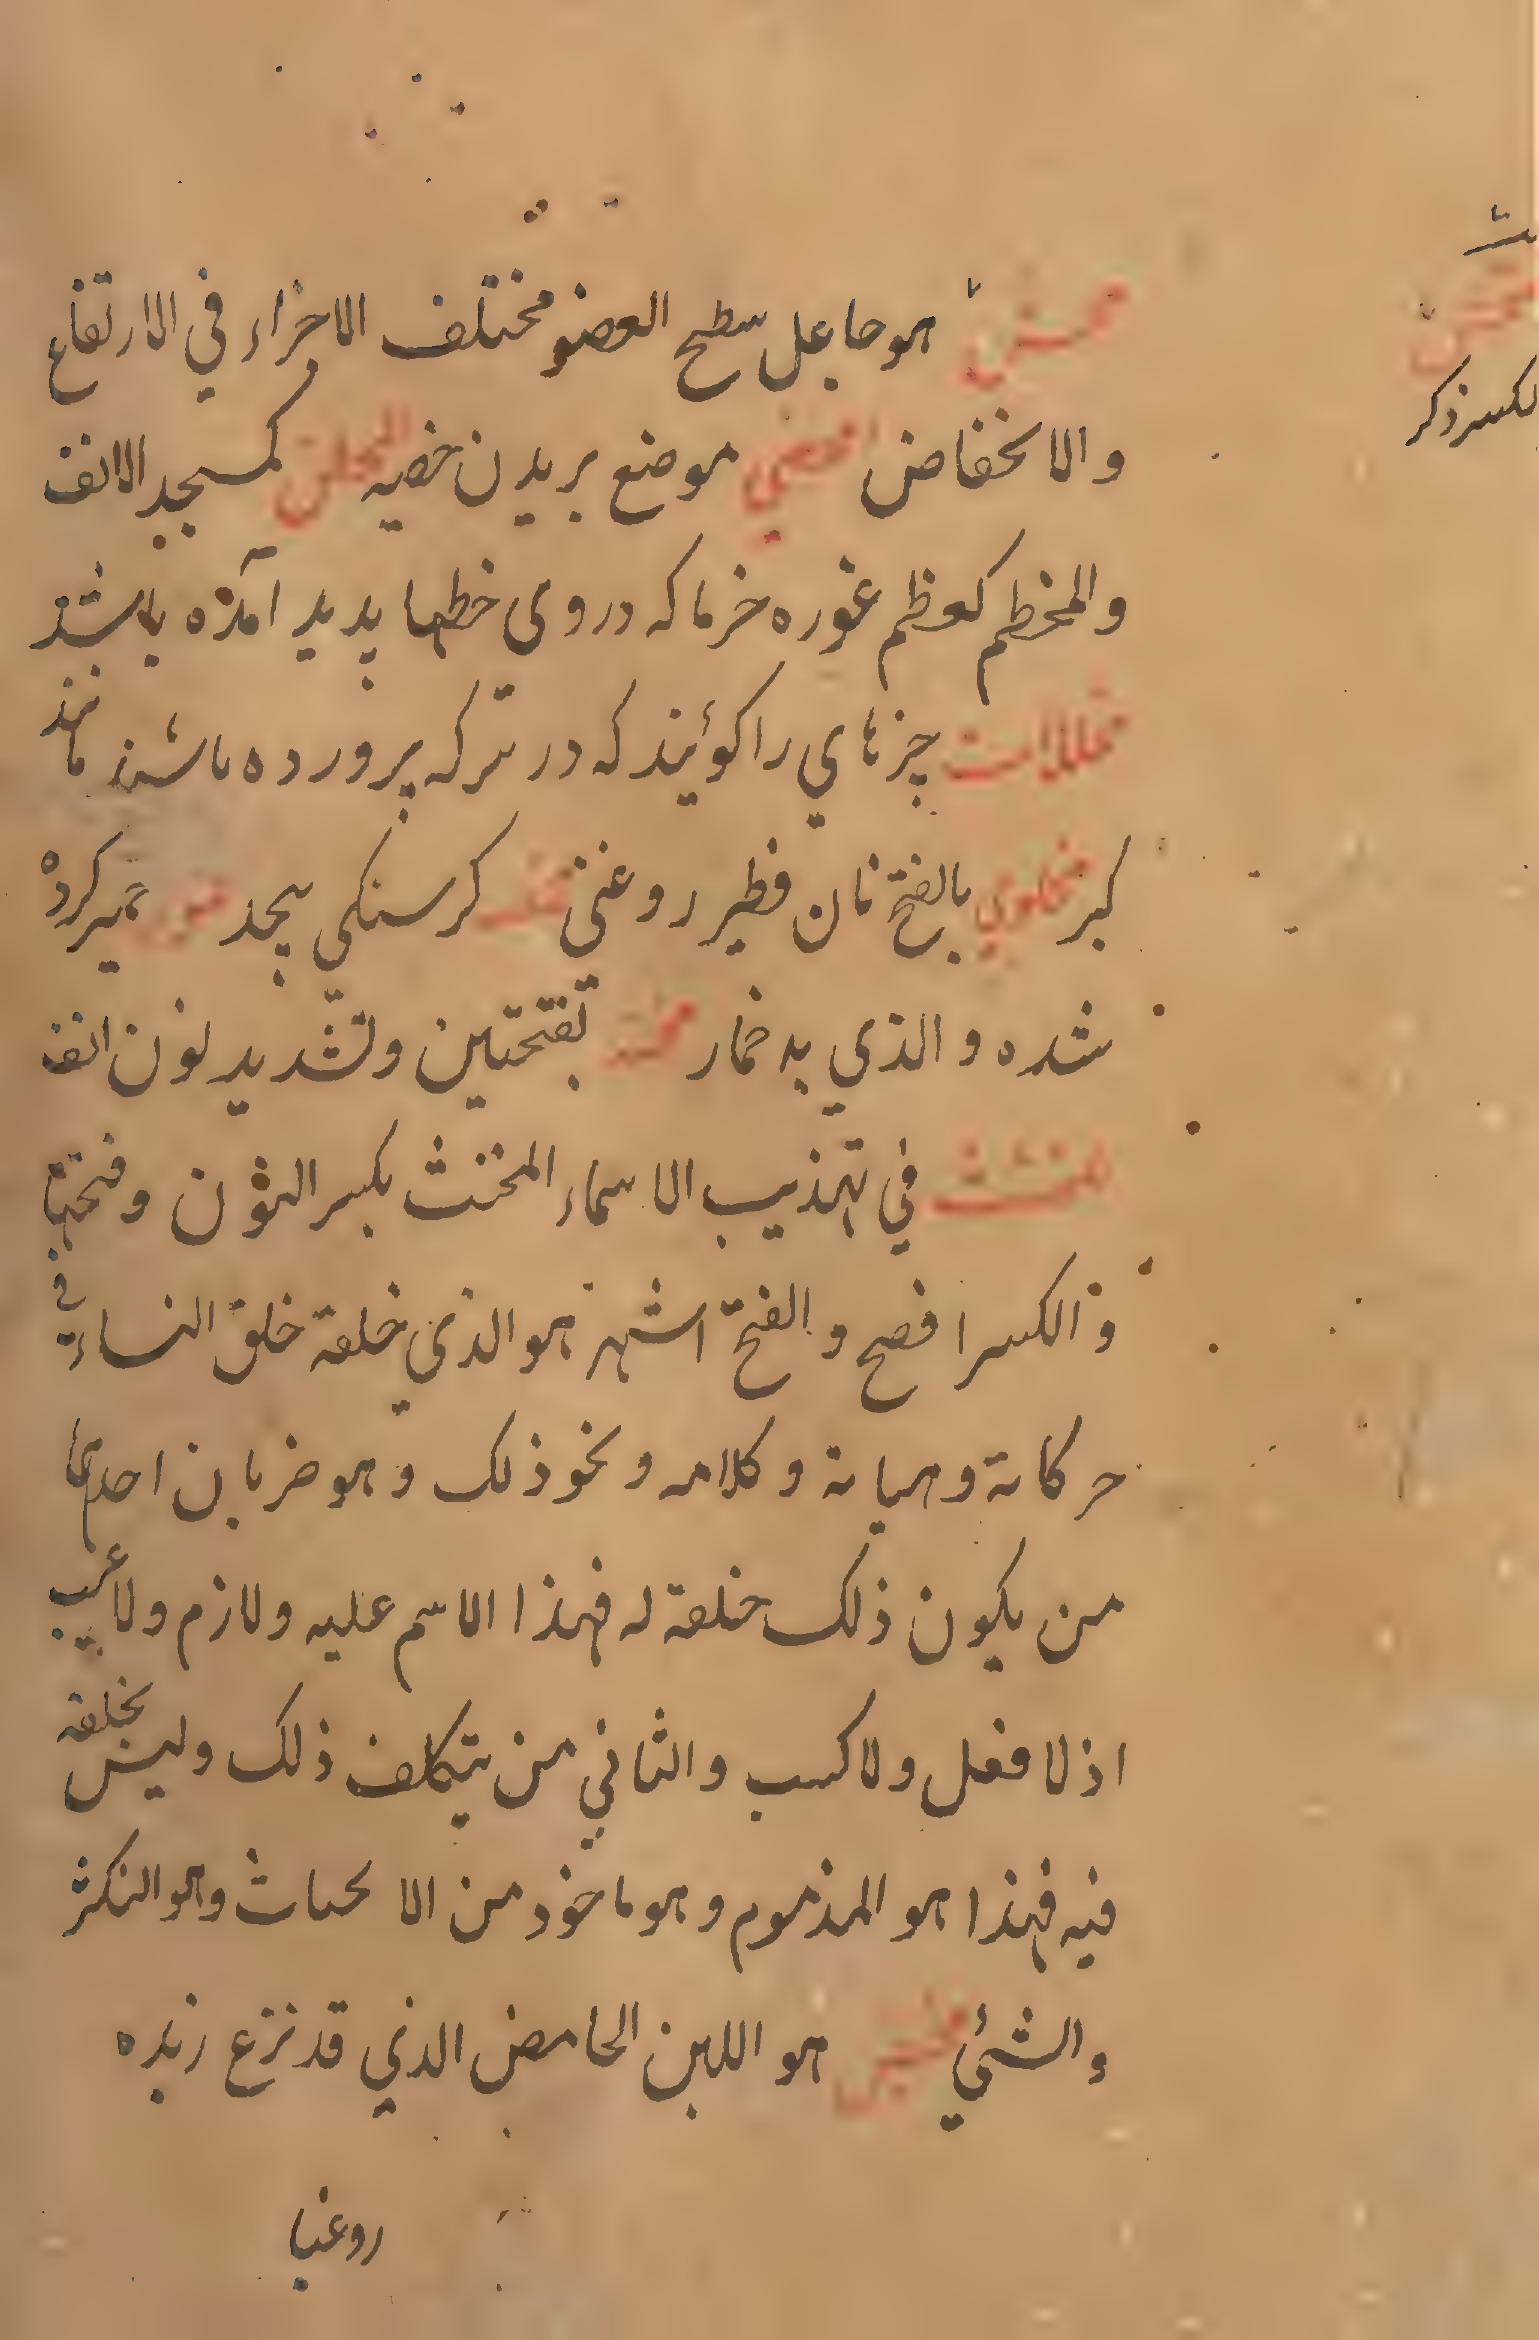 مخشن هو جاعل سطح العضو مختلف الاجزاء في الارتفاع
والانخفاض مخصي موضع بريدن خصيه المخطن كمسجد الانف
والمخطم كعظم غوره خرما كه در وى خطها پديد آمده باشد
مخللات چيزهاي را كوئيند كه در سركه پرورده باشند مانند
كبر مخلوي بالفتح نان فطير روغنى كرسنكي بيحد خمير كرده
شده والذي به خمار مخنة بفتحتين وتشديد نون انف
مخنث في تهذيب الاسماء المخنث بكسر النون وفتحها
والكسر افصح والفتح اشهر هو الذي خلقة خلق النساء في
حركاته وهياته وكلامه ونحو ذلك وهو ضربان احدهما
من يكون ذلك خلقة له فهذا الاسم عليه ولازم ولا عيب
اذ لا فعل ولا كسب والثاني من يتكلف ذلك وليس بخلقه
فيه فهذا هو المذموم وهو ماخود من الانحناث وهو التكثر
والشئي مخيض هو اللبن الحامض الذي قد نزع زبده
روغنيا
لكسر ذكر